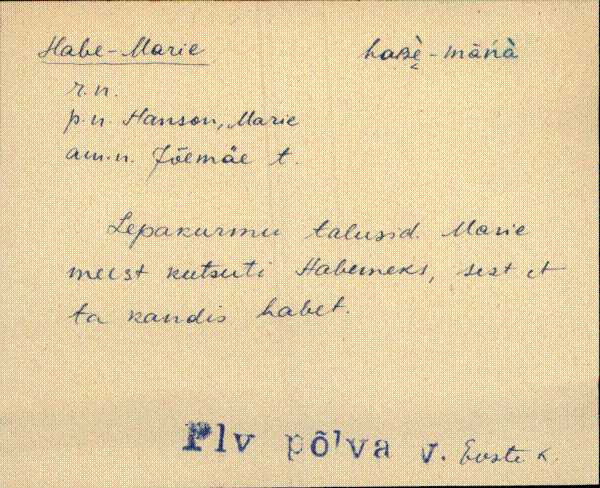 Habe-Marie haʙè̬-māńà
r.n.
p.n. Hanson, Marie
am.n. Jõemäe t.
Lepakurmu talusid. Marie
meest kutsuti Habemeks, sest et
ta kandis habet.
Plv põlva v. Eoste k.